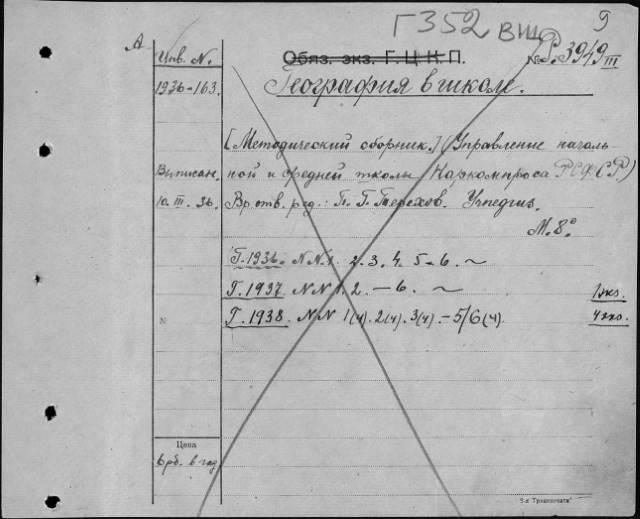 Г352 ВШ 9
А
Инв. N.
Обяз. экз. Г.Ц.К.П.
№ Р.3949 III
1936-163.
География в школе.
[Методический сборник.] (Управление началь-
Выписан. ной и средней школы Наркомпроса РСФСР)
10.III.36. Вр. отв. ред.: П. Г. Терехов. Учпедгиз.
М. 8°
Г. 1936. NN 1. 2. 3. 4. 5-6. ~
Г. 1937 NN 1. 2. – 6. ~ 1 экз.
N Г. 1938. NN 1(4). 2(4). 3(4). – 5/6(4). 4 экз.
Цена
6 рб. в год